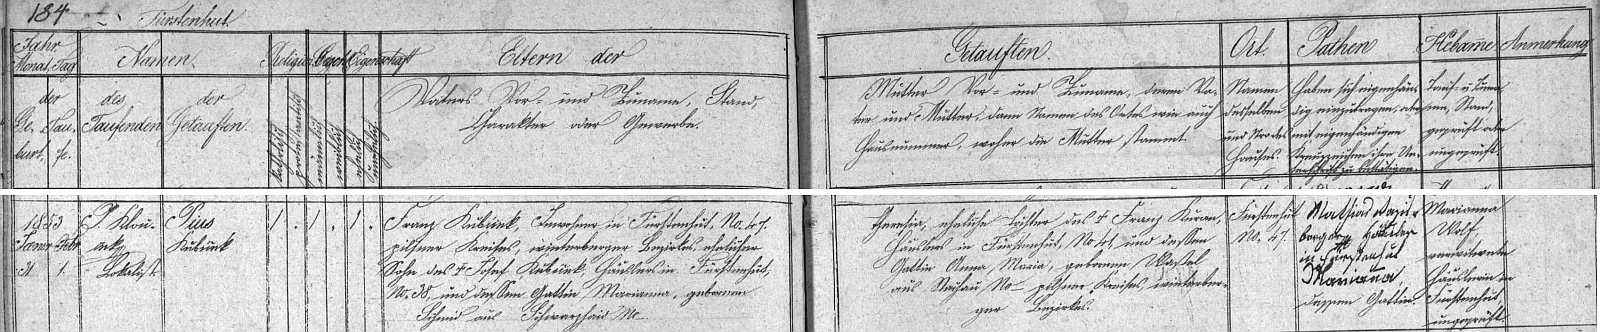 184
Fürstenhut.
Jahr
Monat, Tag
Namen.
Religion
Geschl.
Eigenschaft
Eltern der
Getauften.
Ort.
Pathen
Hebame
Anmerkung
der
Ge-
burt,
Tau-
fe.
des
Taufenden
der
Getauften.
katholisch
protestantisch
männlich
weiblich
ehelich
unehelich
Vaters Vor- und Zuname, Stand,
Charakter oder Gewerbe.
Mutter Vor- und Zuname, deren Va-
ter und Mutter, dann Namen des Ortes wie auch
Hausnummer, woher die Mutter stammt.
Namen
desselben
und Nro des
Hauses.
Haben sich eigenhän-
dig einzutragen, oder
mit eigenhändigen
Kreuzzeichen ihre Un-
terschrift zu bestätigen.
Tauf- u. Zuna-
men, Stand,
geprüft oder
ungeprüft
1853
Jänner Febr
31 1.
P.
Lokalist
Pius
Kubiček
1. 1. 1.
Franz Kubiček, Inwohner in Fürstenhut, No. 47.
pilsner Kreises, winterberger Bezirkes, ehelicher
Sohn des † Josef Kubiček, Häuslers in Fürstenhut,
No. 38, und dessen Gattin Marianna, geborenen
Schmid aus Schwarzhaid No
Theresia, eheliche Tochter des † Franz
Häuslers in Fürstenhut, No 41, und dessen
Gattin Anna Maria, geborenen
aus No – pilsner Kreises, winterber-
ger Bezirkes.
Fürstenhut
No. 47.
Mathias
Häusler
in Fürstenhut
Marianna
dessen Gattin
Marianna
Wolf,
Häuslerin in
Fürstenhut,
ungeprüft